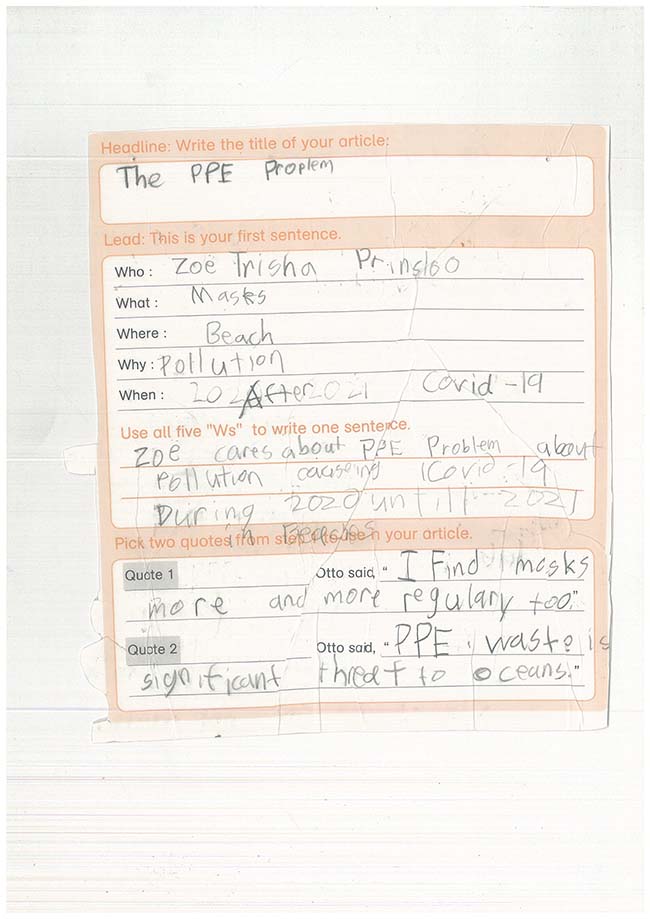 Headline: Write the title of your article:
The PPE Proplem
Lead: This is your first sentence.
Who: Zoë Trisha Prinsloo
What: Masks
Where: Beach
Why: Pollution
When: After 2021 Covid-19
Use all five "Ws" to write one sentence.
Zoë cares about PPE Problem about
Pollution causeing Covid-19
During 2020 untill 2021
in Beaches
Pick two quotes from step 1 to use in your article.
Quote 1 Otto said, "I Find masks
more and more regulary too."
Quote 2 Otto said, "PPE waste is
significant threat to oceans."